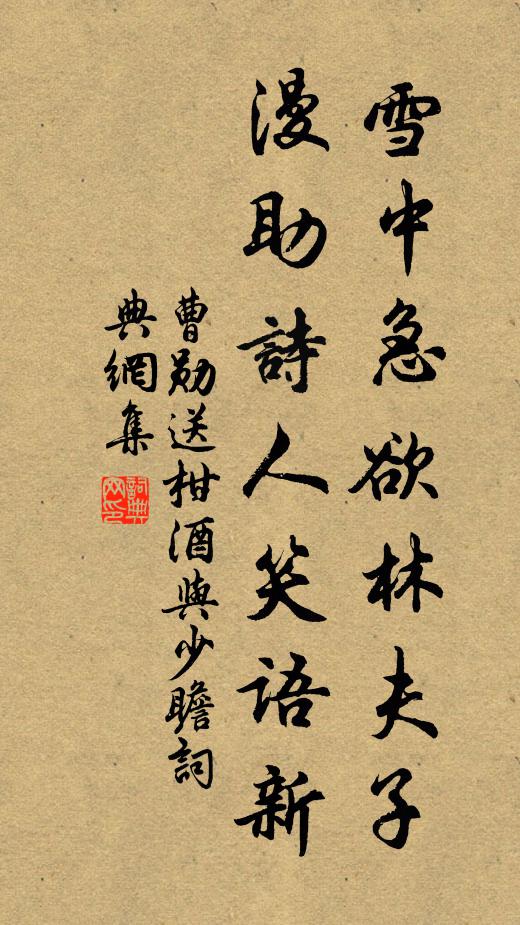 雪中急欲林夫子
漫助詩人笑語新
曹勛送柑酒與少瞻詞
典網集
詞典
网印